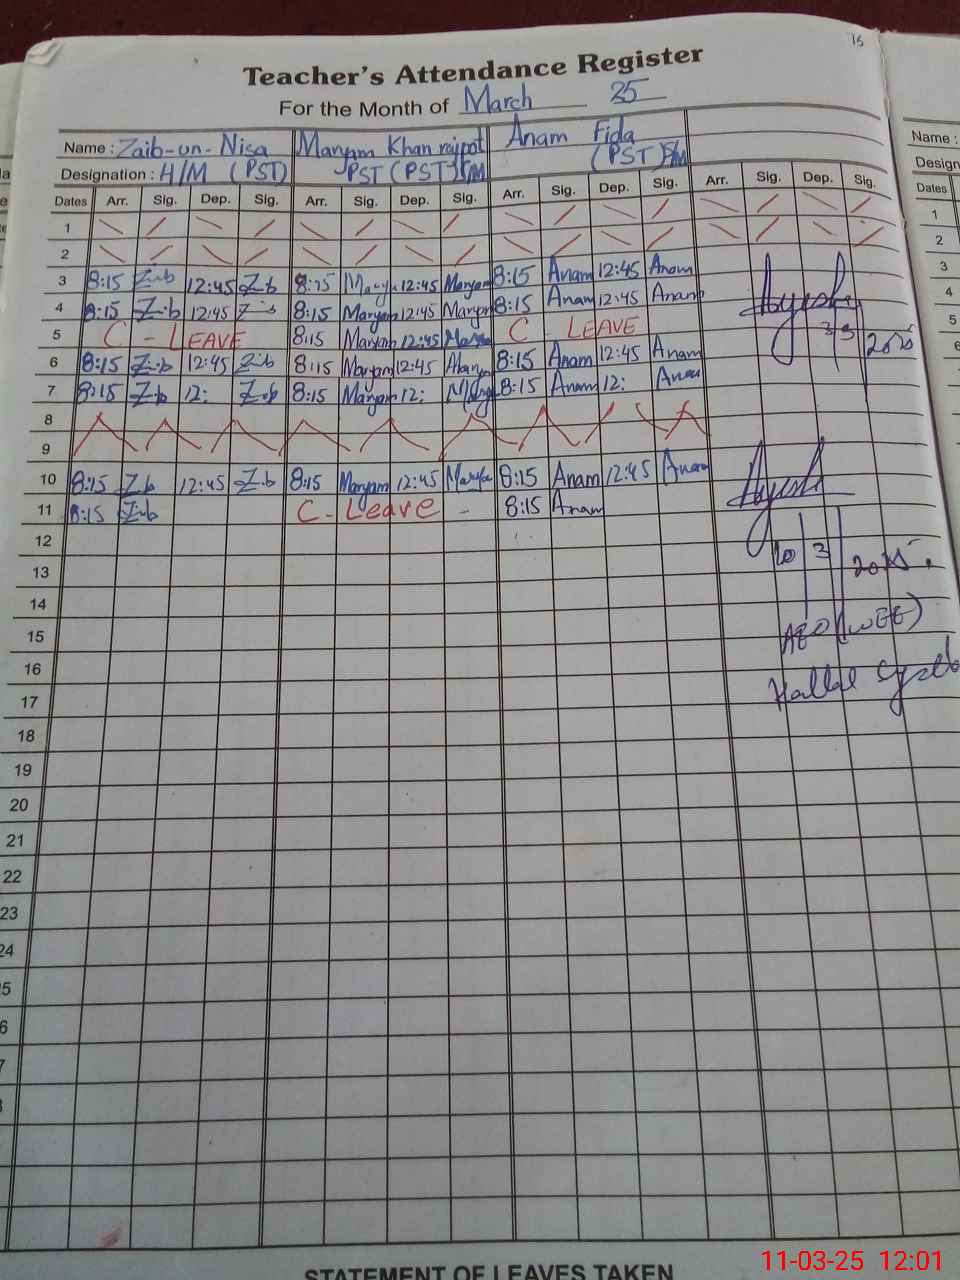 15
Teacher's Attendance Register
For the Month of March 25
Name : Zaib-un-Nisa Maryam Khan rajpot Anam Fida
Designation : H/M (PST) PST (PST) (PST)
Dates Arr. Sig. Dep. Sig. Arr. Sig. Dep. Sig. Arr. Sig. Dep. Sig. Arr. Sig. Dep. Sig.
1
2
3 8:15 Z.b 12:45 Z.b 8:15 Marya 12:45 Maryam 8:15 Anam 12:45 Anam
4 8:15 Z.b 12:45 8:15 Maryam 12:45 Maryam 8:15 Anam 12:45 Anam
5 C - LEAVE 8:15 Maryam 12:45 C LEAVE
6 8:15 Z.b 12:45 Z.b 8:15 Maryam 12:45 8:15 Anam 12:45 Anam
7 8:15 Z.b 12: Z.b 8:15 Maryam 12: 8:15 Anam 12: Anam
8
9
10 8:15 Z.b 12:45 Z.b 8:15 Maryam 12:45 8:15 Anam 12:45 Anam
11 8:15 Z.b C - Leave - 8:15 Anam
12
13
14
15
16
17
18
19
20
21
22
23
24
Ayesh
3 3 2025
Ayesh
10 3 2025.
AEO (WEE)
Name :
Design
Dates
1
2
3
4
5
6
STATEMENT OF LEAVES TAKEN
11-03-25 12:01